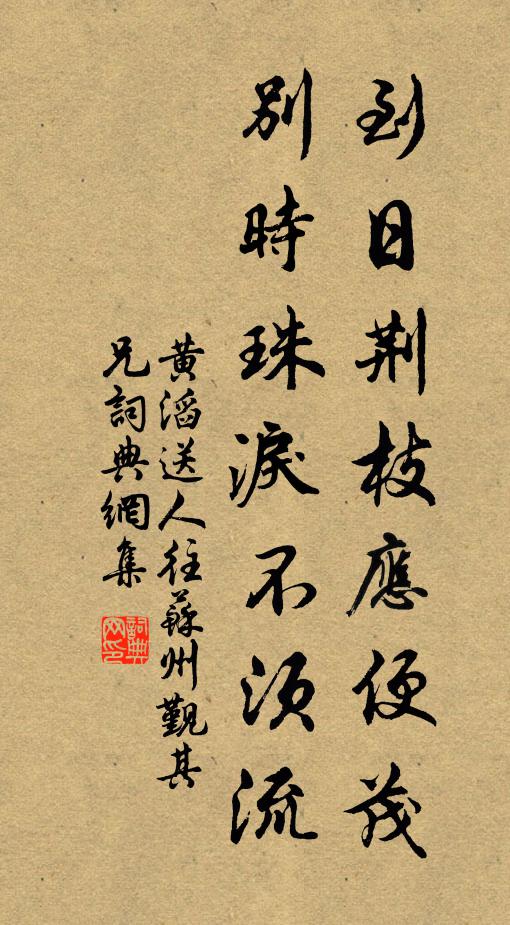 到日荆枝應便茂
別時珠淚不須流
黄滔送人往蘇州覲其
兄詞典網集
詞典
网印